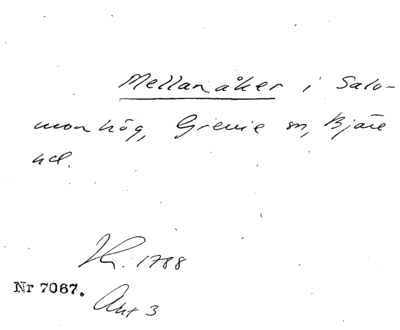 Mellanåker i Salo-
monhög, Grevie sn, Bjäre
hd.
Kr. 1788
Nr 7067.
Akt 3